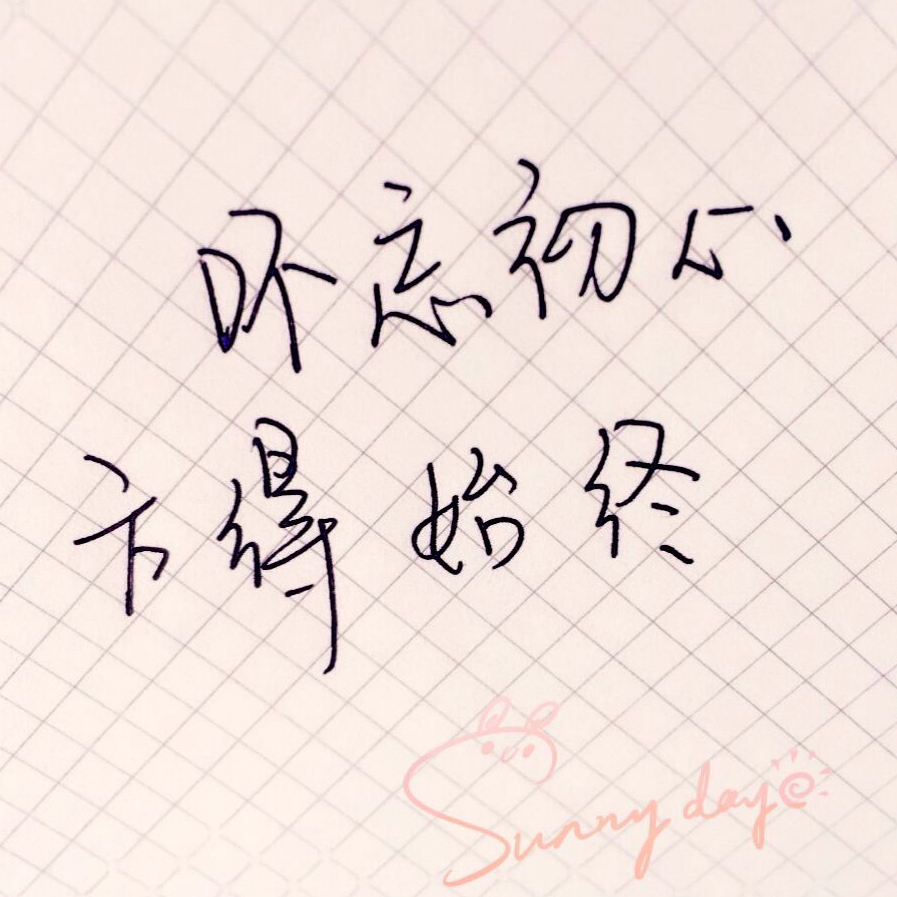 吥忘初心
方得始终
Sunny day